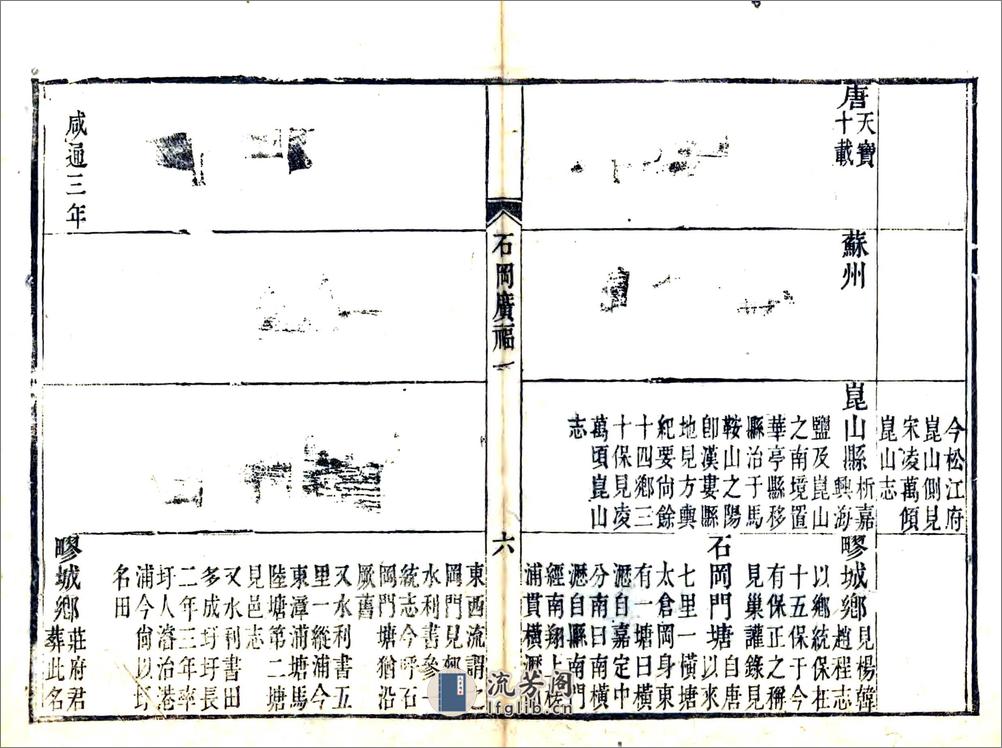 唐天寶
十載
蘇州
今松江府
崑山側見
宋凌萬傾
崑山志
崑山縣析嘉
興海
鹽及崑山
之南境置
華亭縣移
縣治于馬
鞍山之陽
卽漢婁縣
地見方輿
紀要尙餘
十四鄉三
十保見凌
萬頃崑山
志
疁城鄉見楊譓
趙程志
以鄉統保在
十五保于今
有保正之稱
見巢謹錄見
石岡門塘自唐
以來
七里一橫塘
太倉岡身東
有一塘曰橫
瀝自嘉定中
分南曰南橫
瀝自縣南門
經南翔上槎
浦貫橫瀝
石岡廣福
一
六
東西流謂之
岡門見
水利書參
統志今呼石
岡門塘猶沿
厥舊
又水利書五
里一縱浦今
東漳浦塘馬
陸塘第二塘
見邑志
又水利書田
多成圩圩長
二年三年率
圩人濬治港
浦今尙以圩
名田
咸通三年
疁城鄉莊府君
葬此名
流芳阁
lfglib.cn